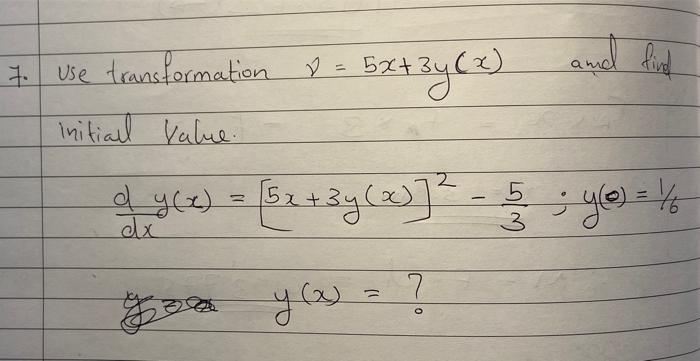 7. Use transformation v = 5x+3y(x) and find
initial value.
d/dx y(x) = [5x+3y(x)]² - 5/3 ; y(0) = 1/6
y(x) = ?